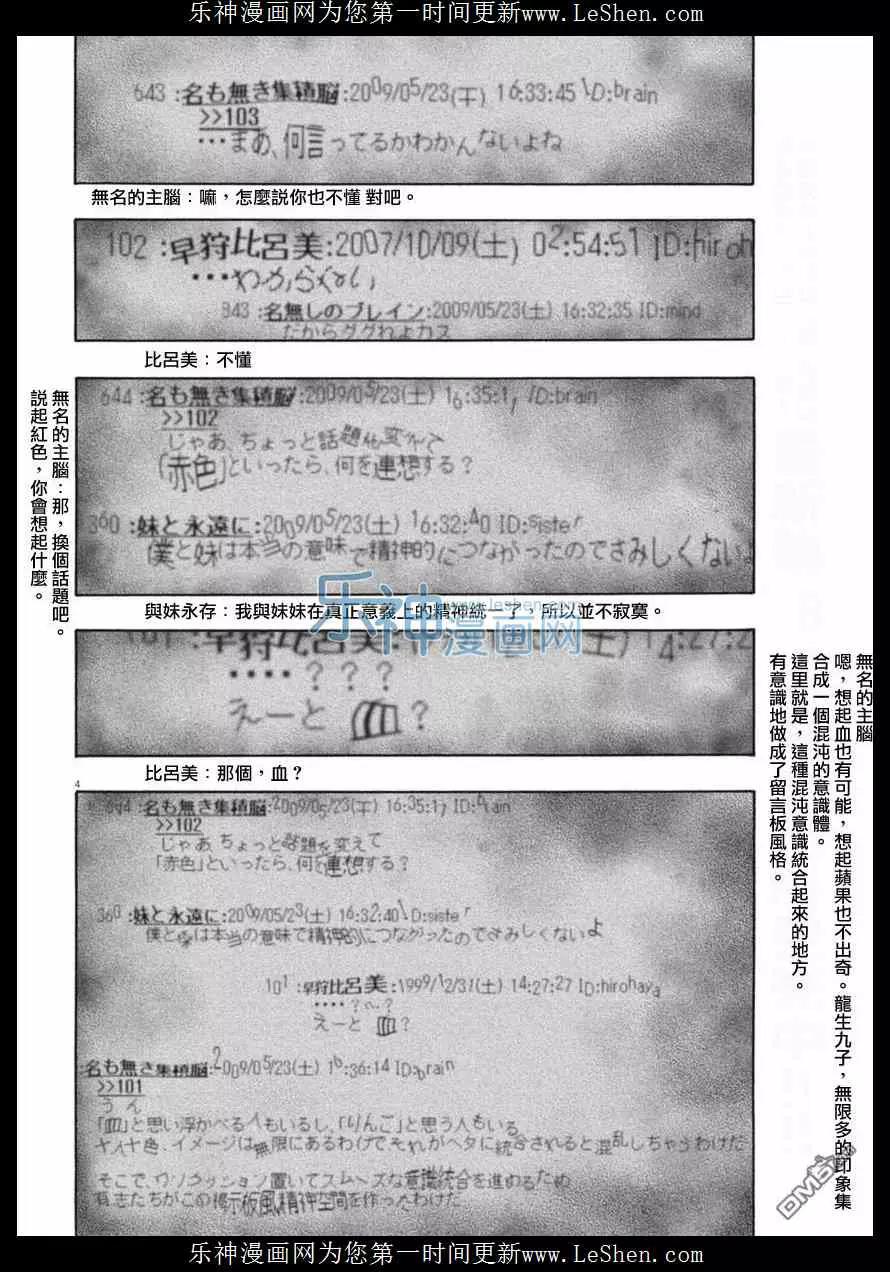 乐神漫画网为您第一时间更新www.LeShen.com
643 :名も無き集積脳:2009/05/23(干) 16:33:45 ID:brain
>>103
…まあ、何言ってるかわかんないよね
無名的主腦：嘛，怎麼説你也不懂 對吧。
102 :早狩比呂美:2007/10/09(土) 02:54:51 ID:hiroh
…わからない
843 :名無しのブレイン:2009/05/23(土) 16:32:35 ID:mind
だからググれよカス
比呂美：不懂
644 :名も無き集積脳:2009/05/23(土) 16:35:1 ID:brain
>>102
じゃあ、ちょっと話題を変えて
「赤色」といったら、何を連想する？
360 :妹と永遠に:2009/05/23(土) 16:32:40 ID:sister
僕と妹は本当の意味で精神的につながったのでさみしくないよ
無名的主腦：那，換個話題吧。
説起紅色，你會想起什麼。
乐神漫画网
www.leshen.com
與妹永存：我與妹妹在真正意義上的精神統一了，所以並不寂寞。
101 :早狩比呂美:1 2 (土) 14:27:2
････？？？
えーと 血？
比呂美：那個，血？
4
644 :名も無き集積脳:2009/05/23(干) 16:35:17 ID:brain
>>102
じゃあ、ちょっと話題を変えて
「赤色」といったら、何を連想する？
360 :妹と永遠に:2009/05/23(土) 16:32:40 ID:sister
僕と妹は本当の意味で精神的につながったのでさみしくないよ
101 :早狩比呂美:1999/12/31(土) 14:27:27 ID:hirohaya
････？～？
えーと 血？
:名も無き集積脳:2009/05/23(土) 16:36:14 ID:brain
>>101
うん
「血」と思い浮かべる人もいるし、「りんご」と思う人もいる
十人十色、イメージは無限にあるわけで それがヘタに統合されると混乱しちゃうわけだ
そこで、ワンクッション置いてスムーズな意識統合を進めるため
有志たちがこの掲示板風精神空間を作ったわけだ
無名的主腦
嗯，想起血也有可能，想起蘋果也不出奇。龍生九子，無限多的印象集
合成一個混沌的意識體。
這里就是，這種混沌意識統合起來的地方。
有意識地做成了留言板風格。
DMB
乐神漫画网为您第一时间更新www.LeShen.com